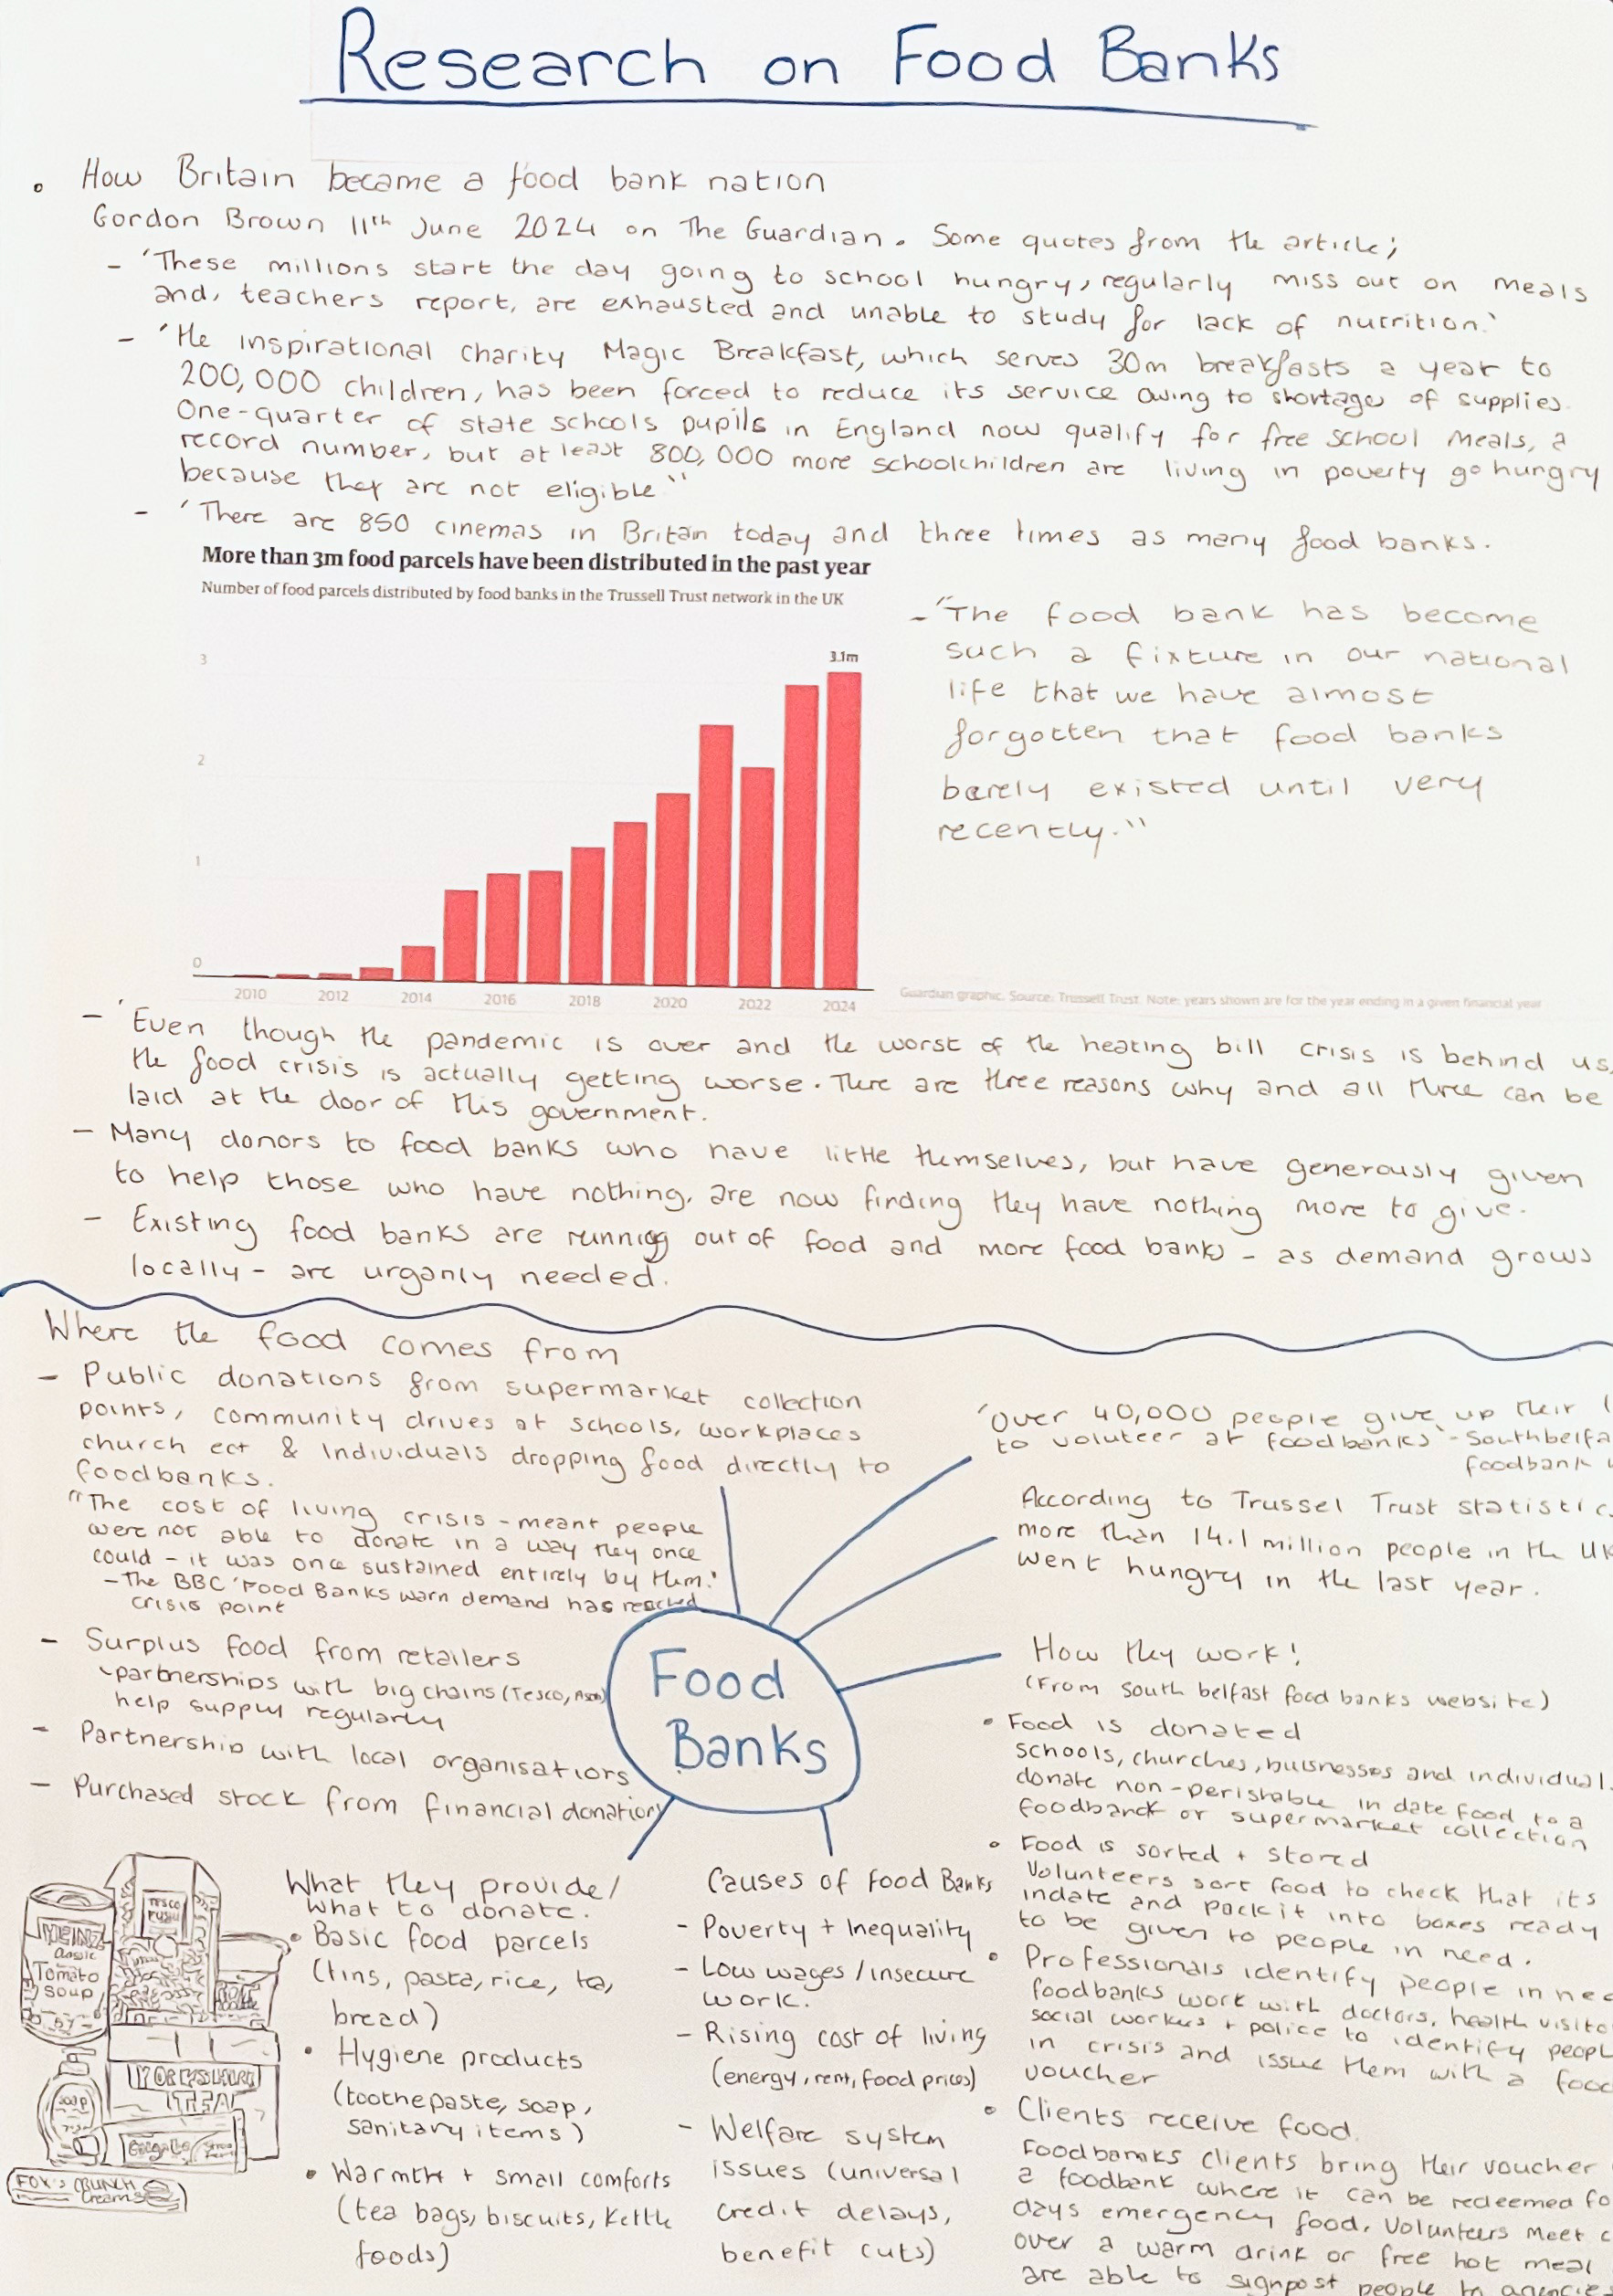 Research on Food Banks
• How Britain became a food bank nation
Gordon Brown 11th June 2024 on The Guardian. Some quotes from the article;
- 'These millions start the day going to school hungry, regularly miss out on meals
and, teachers report, are exhausted and unable to study for lack of nutrition.'
- 'The inspirational charity Magic Breakfast, which serves 30m breakfasts a year to
200,000 children, has been forced to reduce its service owing to shortages of supplies.
One-quarter of state schools pupils in England now qualify for free school meals, a
record number, but at least 800,000 more schoolchildren are living in poverty go hungry
because they are not eligible"
- 'There are 850 cinemas in Britain today and three times as many food banks.
More than 3m food parcels have been distributed in the past year
Number of food parcels distributed by food banks in the Trussell Trust network in the UK
3
3.1m
2
1
0
2010 2012 2014 2016 2018 2020 2022 2024
Guardian graphic. Source: Trussell Trust. Note: years shown are for the year ending in a given financial year
- "The food bank has become
such a fixture in our national
life that we have almost
forgotten that food banks
barely existed until very
recently."
- 'Even though the pandemic is over and the worst of the heating bill crisis is behind us,
the food crisis is actually getting worse. There are three reasons why and all three can be
laid at the door of this government.
- Many donors to food banks who have little themselves, but have generously given
to help those who have nothing, are now finding they have nothing more to give.
- Existing food banks are running out of food and more food banks - as demand grows
locally - are urganly needed.
Where the food comes from
- Public donations from supermarket collection
points, community drives at schools, workplaces
church ect & Individuals dropping food directly to
foodbanks.
"The cost of living crisis - meant people
were not able to donate in a way they once
could - it was once sustained entirely by them."
- The BBC 'Food Banks warn demand has reached
crisis point
- Surplus food from retailers
partnerships with big chains (Tesco, Asda)
help supply regularly
- Partnership with local organisations
- Purchased stock from financial donations
Food
Banks
'Over 40,000 people give up their
to voluteer at foodbanks' - Southbelfa
foodbank
According to Trussel Trust statistic
more than 14.1 million people in the UK
went hungry in the last year.
How they work!
(From south belfast food banks website)
• Food is donated
schools, churches, buisnesses and individual
donate non-perishable in date food to a
foodbank or supermarket collection
• Food is sorted + stored
Volunteers sort food to check that its
indate and pack it into boxes ready
to be given to people in need.
• Professionals identify people in nee
foodbanks work with doctors, health visito
social workers + police to identify peopl
in crisis and issue them with a food
voucher
• Clients receive food.
Foodbanks clients bring their voucher
a foodbank where it can be redeemed fo
days emergency food. Volunteers meet c
over a warm drink or free hot meal
are able to signpost people to agencies
What they provide/
what to donate.
• Basic food parcels
(tins, pasta, rice, tea,
bread)
• Hygiene products
(toothepaste, soap,
sanitary items)
• Warmth + small comforts
(tea bags, biscuits, kettle
foods)
Causes of Food Banks
- Poverty + Inequality
- Low wages / insecure
work.
- Rising cost of living
(energy, rent, food prices)
- Welfare system
issues (universal
credit delays,
benefit cuts)
HEINZ
Tomato
Soup
Tesco
YORKSHIRE
TEA
Soap
FOX'S CRUNCH
Creams